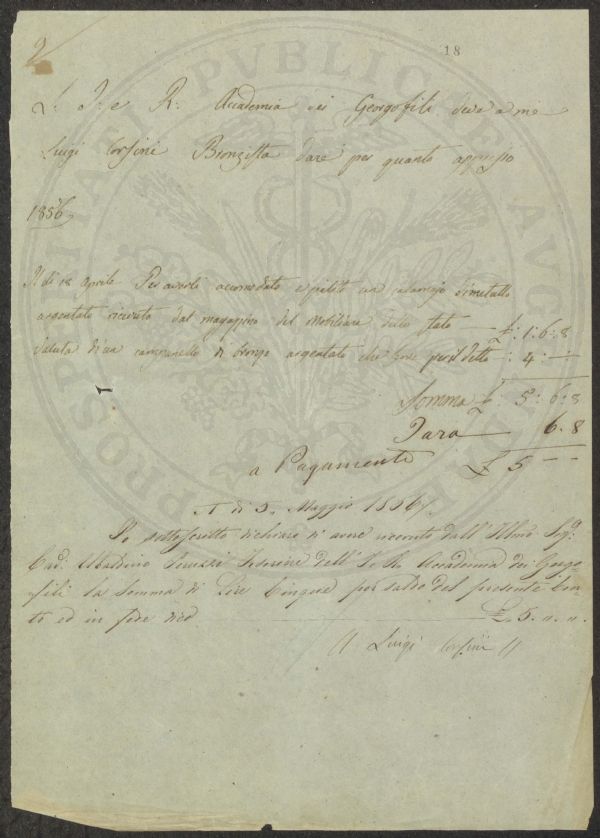 2
18
L' I: e R: Accademia dei Georgofili deve a me
Luigi Corsini Bronzista dare per quanto appresso
1856
Il dì 18 Aprile Per averli accomodato e pulito un calamajo di metallo
argentato ricevuto dal magazzino del Mobiliare dello stato — £ 1: 6: 8
Valuta di un campanello di bronzo argentato che serve per il detto : 4: —
Somma £ 5: 6: 8
Tara — 6. 8
a Pagamento £ 5 — —
A dì 5. Maggio 1856
Io sottoscritto dichiaro di avere ricevuto dall' Illmo Sigr
Cav. Ubaldino Peruzzi Tesoriere dell' I. e R. Accademia dei Georgo
fili la Somma di Lire Cinque per saldo del presente Con-
to ed in fede dico — £. 5. „ „
Luigi Corsini
PROSPERITATI PUBLICAE AUGENDAE